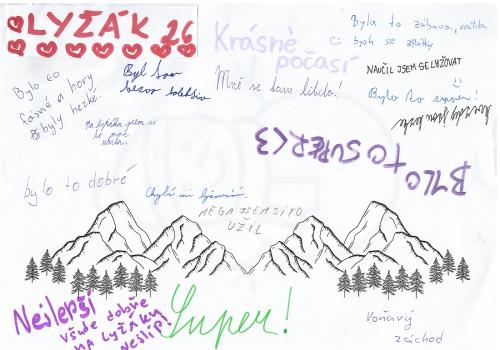 LYŽÁK 26
Krásné
počasí
Byla to zábava, vrátila
bych se zpátky
NAUČIL JSEM SE LYŽOVAT
Bylo to super!
Bylo to
fajné a hory
byly hezké.
Byl tam
Mně se tam líbilo!
Na lyžáku jsem se
BYLO TO SUPER <3
bylo to dobré
Chybí mi lyžování.
MEGA JSEM SI TO
UŽIL
Nejlepší
Všude dobře
NA LYŽÁKU
NEJLÍP!
Super!
Voňavý
záchod